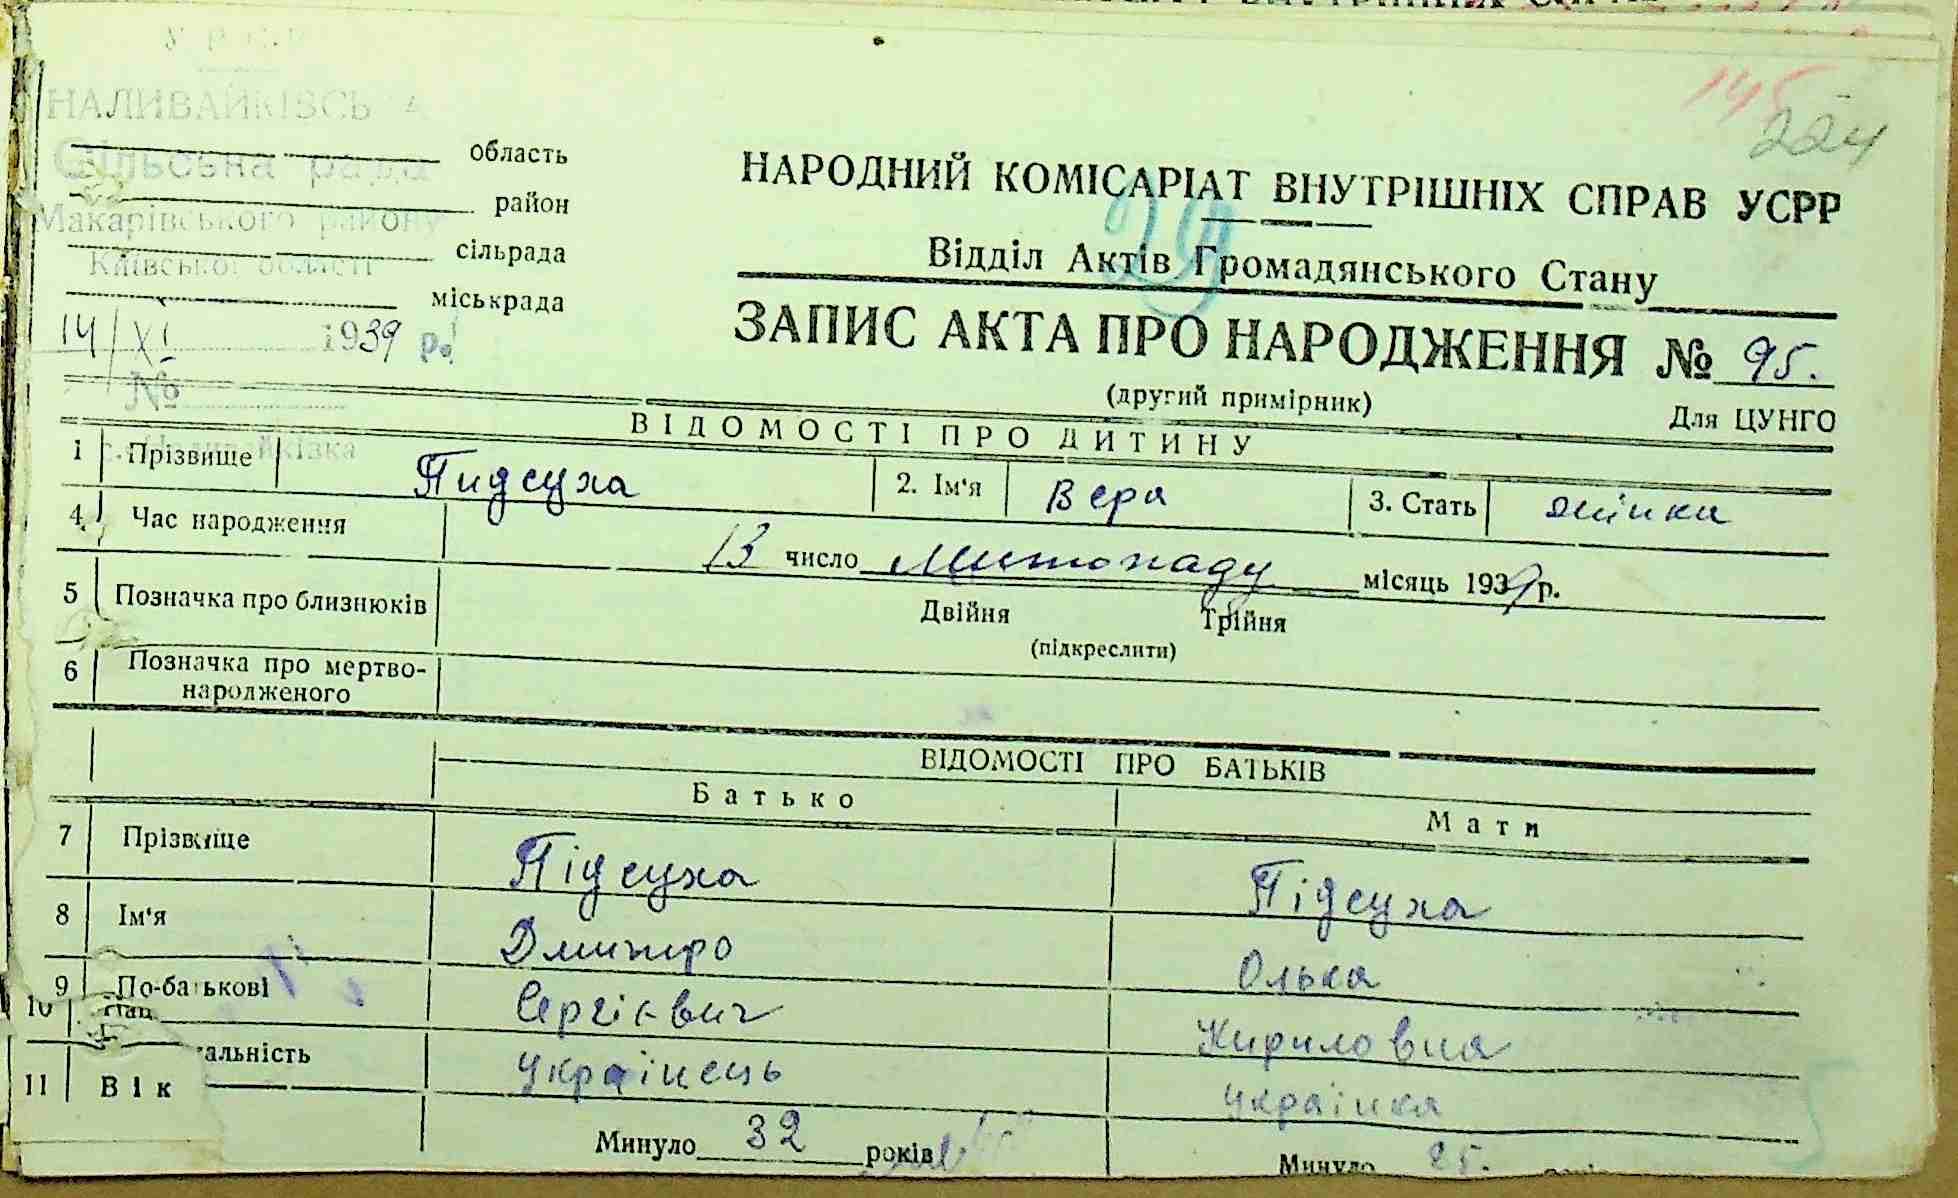 НАЛИВАЙКІВСЬКА
Сільська рада
Макарівського району
Київської області
14/XI 1939 р.
№
с. Наливайківка
область
район
сільрада
міськрада
145
224
29
НАРОДНИЙ КОМІСАРІАТ ВНУТРІШНІХ СПРАВ УСРР
Відділ Актів Громадянського Стану
ЗАПИС АКТА ПРО НАРОДЖЕННЯ № 95.
(другий примірник)
Для ЦУНГО
ВІДОМОСТІ ПРО ДИТИНУ
1 Прізвище Пидсуха 2. Ім'я Вера 3. Стать жінка
4 Час народження 13 число Листопаду місяць 1939 р.
5 Позначка про близнюків Двійня Трійня
(підкреслити)
6 Позначка про мертво-
народженого
ВІДОМОСТІ ПРО БАТЬКІВ
Батько Мати
7 Прізвище Підсуха Підсуха
8 Ім'я Дмитро Олька
9 По-батькові Сергієвич Кириловна
10 Нац
альність українець українка
11 Вік Минуло 32 років Минуло 25.